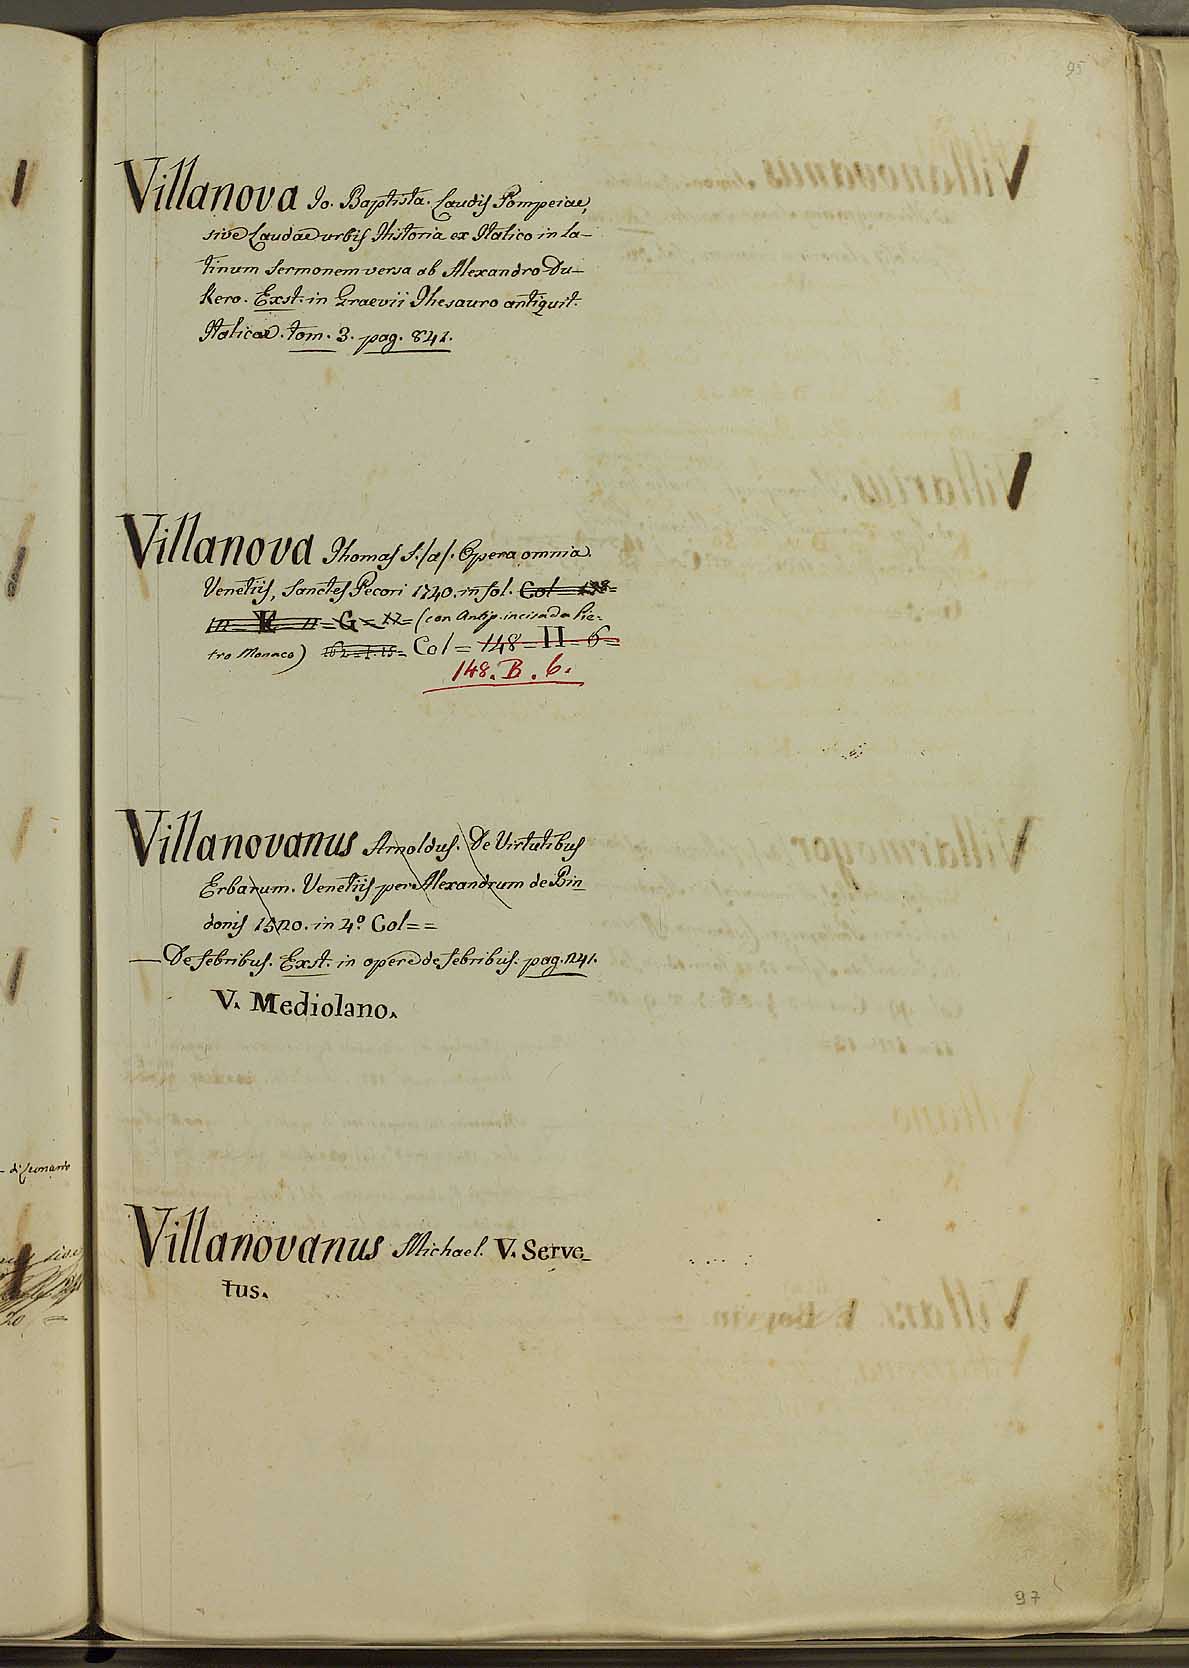 95
Villanova Jo. Baptista. Laudis Pompeiae,
sive Laudae urbis Historia ex Italico in La-
tinum Sermonem versa ab Alexandro Du-
kero. Exst. in Graevii Thesauro antiquit.
Italicae. tom. 3. pag. 841.
Villanova Thomas S. /a/. Opera omnia.
Venetiis, Sanctes Pecori 1740. in fol. Col
G = 17 = (con Antip. incisa da Pie-
tro Monaco) Col = 148 = II = 6 =
148. B. 6.
Villanovanus Arnoldus. De Virtutibus
Erbarum. Venetiis per Alexandrum de Bin
donis 1520. in 4º Col = =
— De febribus. Exst. in opere de febribus. pag. 241.
V. Mediolano.
Villanovanus Michael. V. Serve-
tus.
- di Leonardo
97